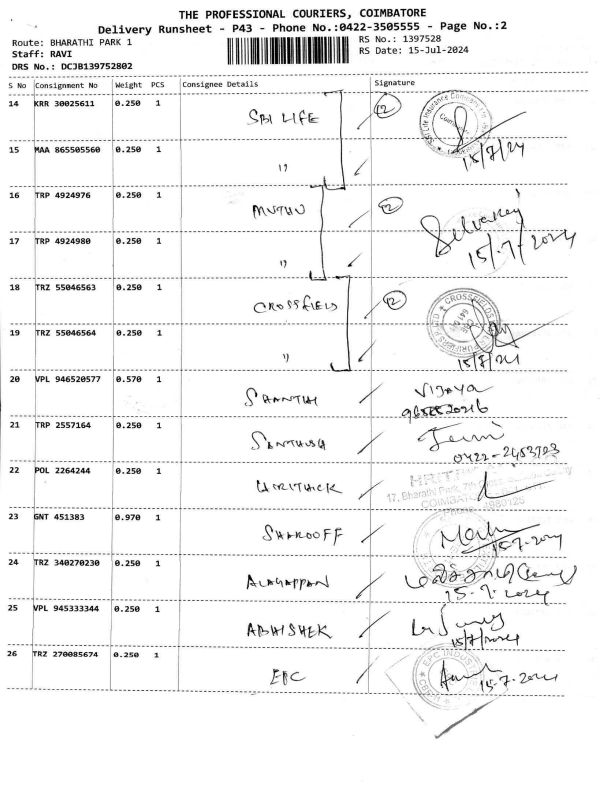 THE PROFESSIONAL COURIERS, COIMBATORE
Delivery Runsheet - P43 - Phone No.:0422-3505555 - Page No.:2
Route: BHARATHI PARK 1
RS No.: 1397528
Staff: RAVI
RS Date: 15-Jul-2024
DRS No.: DCJB139752802
S No Consignment No Weight PCS Consignee Details Signature
14 KRR 30025611 0.250 1 SBI LIFE 12
15 MAA 865505560 0.250 1 " 15/7/24
16 TRP 4924976 0.250 1 MUTHU 12
17 TRP 4924980 0.250 1 " 15.7.2024
18 TRZ 55046563 0.250 1 CROSSFIELD 12
19 TRZ 55046564 0.250 1 " 15/7/24
20 VPL 946520577 0.570 1 SHANTHI VIJAYA
21 TRP 2557164 0.250 1 SANTHOSH
0422-2453723
22 POL 2264244 0.250 1 HRITHICK
17, Bharathi Park, 7th Cross
COIMBATORE
23 GNT 451383 0.970 1 SHAROOFF 15.7.2024
24 TRZ 340270230 0.250 1 ALAGAPPAN
15.7.2024
25 VPL 945333344 0.250 1 ABHISHEK
15/7/2024
26 TRZ 270085674 0.250 1 EPC 15.7.2024